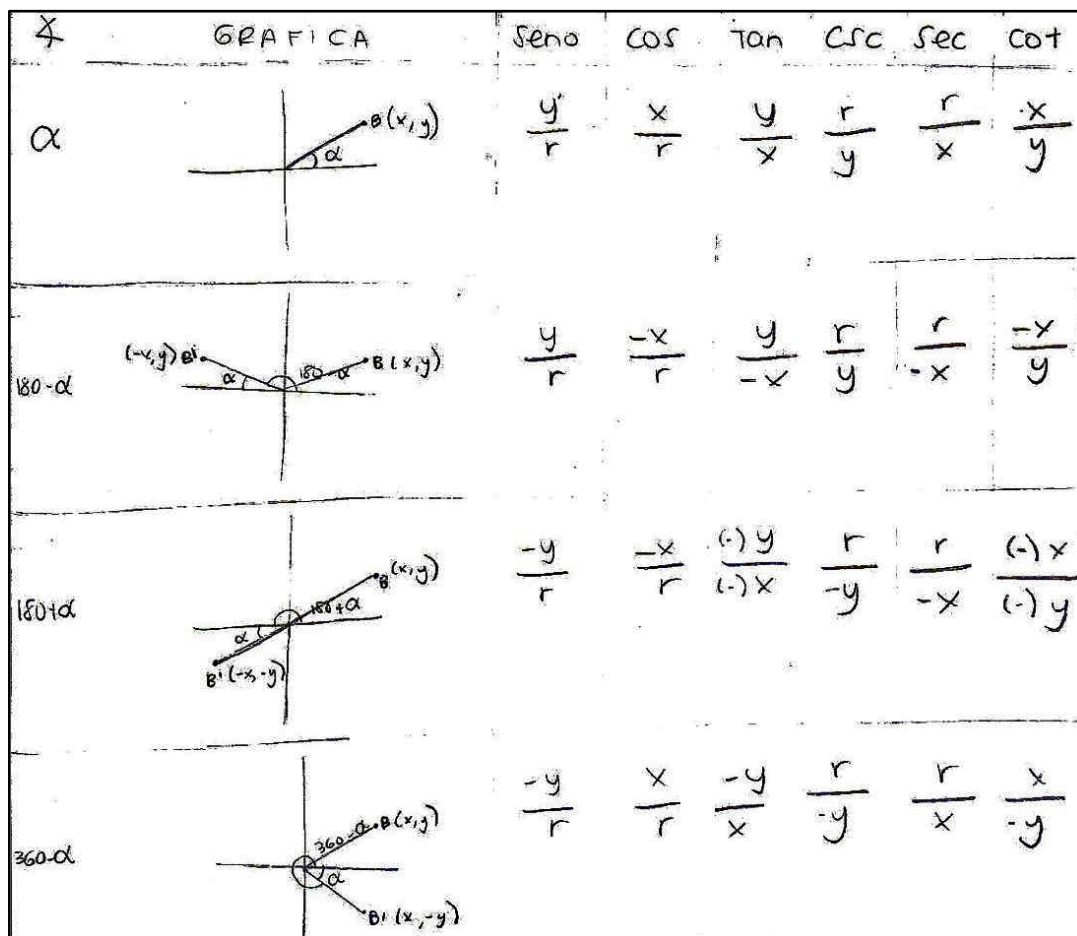 ∡ GRAFICA Seno cos Tan Csc Sec cot
α B(x,y) α y/r x/r y/x r/y r/x x/y
180-α (-x,y) B' α 180-α B(x,y) y/r -x/r y/-x r/y r/-x -x/y
180+α B(x,y) 180+α α B'(-x,-y) -y/r -x/r (-)y/(-)x r/-y r/-x (-)x/(-)y
360-α 360-α B(x,y) α B'(x,-y) -y/r x/r -y/x r/-y r/x x/-y